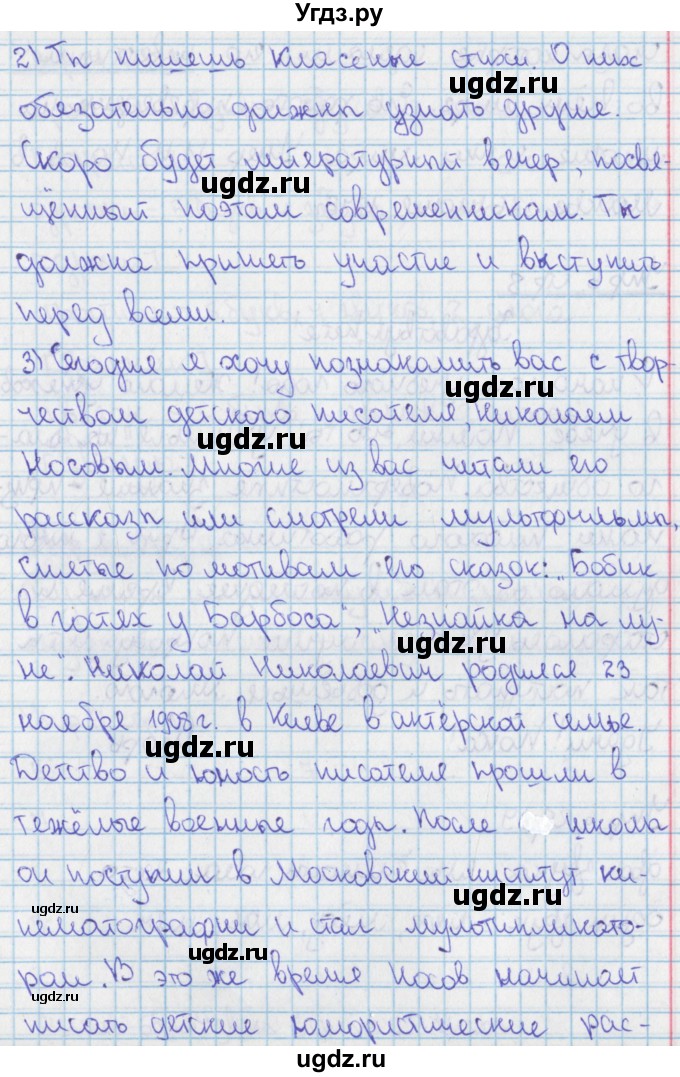 Угдз.ру
2) Ты пишешь классные стихи. О них
обязательно должны узнать другие.
Скоро будет литературный вечер, посвя-
щённый поэтам современникам. Ты
должна принять участие и выступить
перед всеми.
3) Сегодня я хочу познакомить вас с твор-
чеством детского писателя, Николаем
Носовым. Многие из вас читали его
рассказы или смотрели мультфильмы,
снятые по мотивам его сказок: „Бобик
в гостях у Барбоса", „Незнайка на лу-
не". Николай Николаевич родился 23
ноября 1908 г. в Киеве в актёрской семье.
Детство и юность писателя прошли в
тяжёлые военные годы. После школы
он поступил в Московский институт ки-
нематографии и стал мультипликато-
ром. В это же время Носов начинает
писать детские юмористические рас-
ugdz.ru
ugdz.ru
ugdz.ru
ugdz.ru
ugdz.ru
ugdz.ru
ugdz.ru
ugdz.ru
ugdz.ru
ugdz.ru